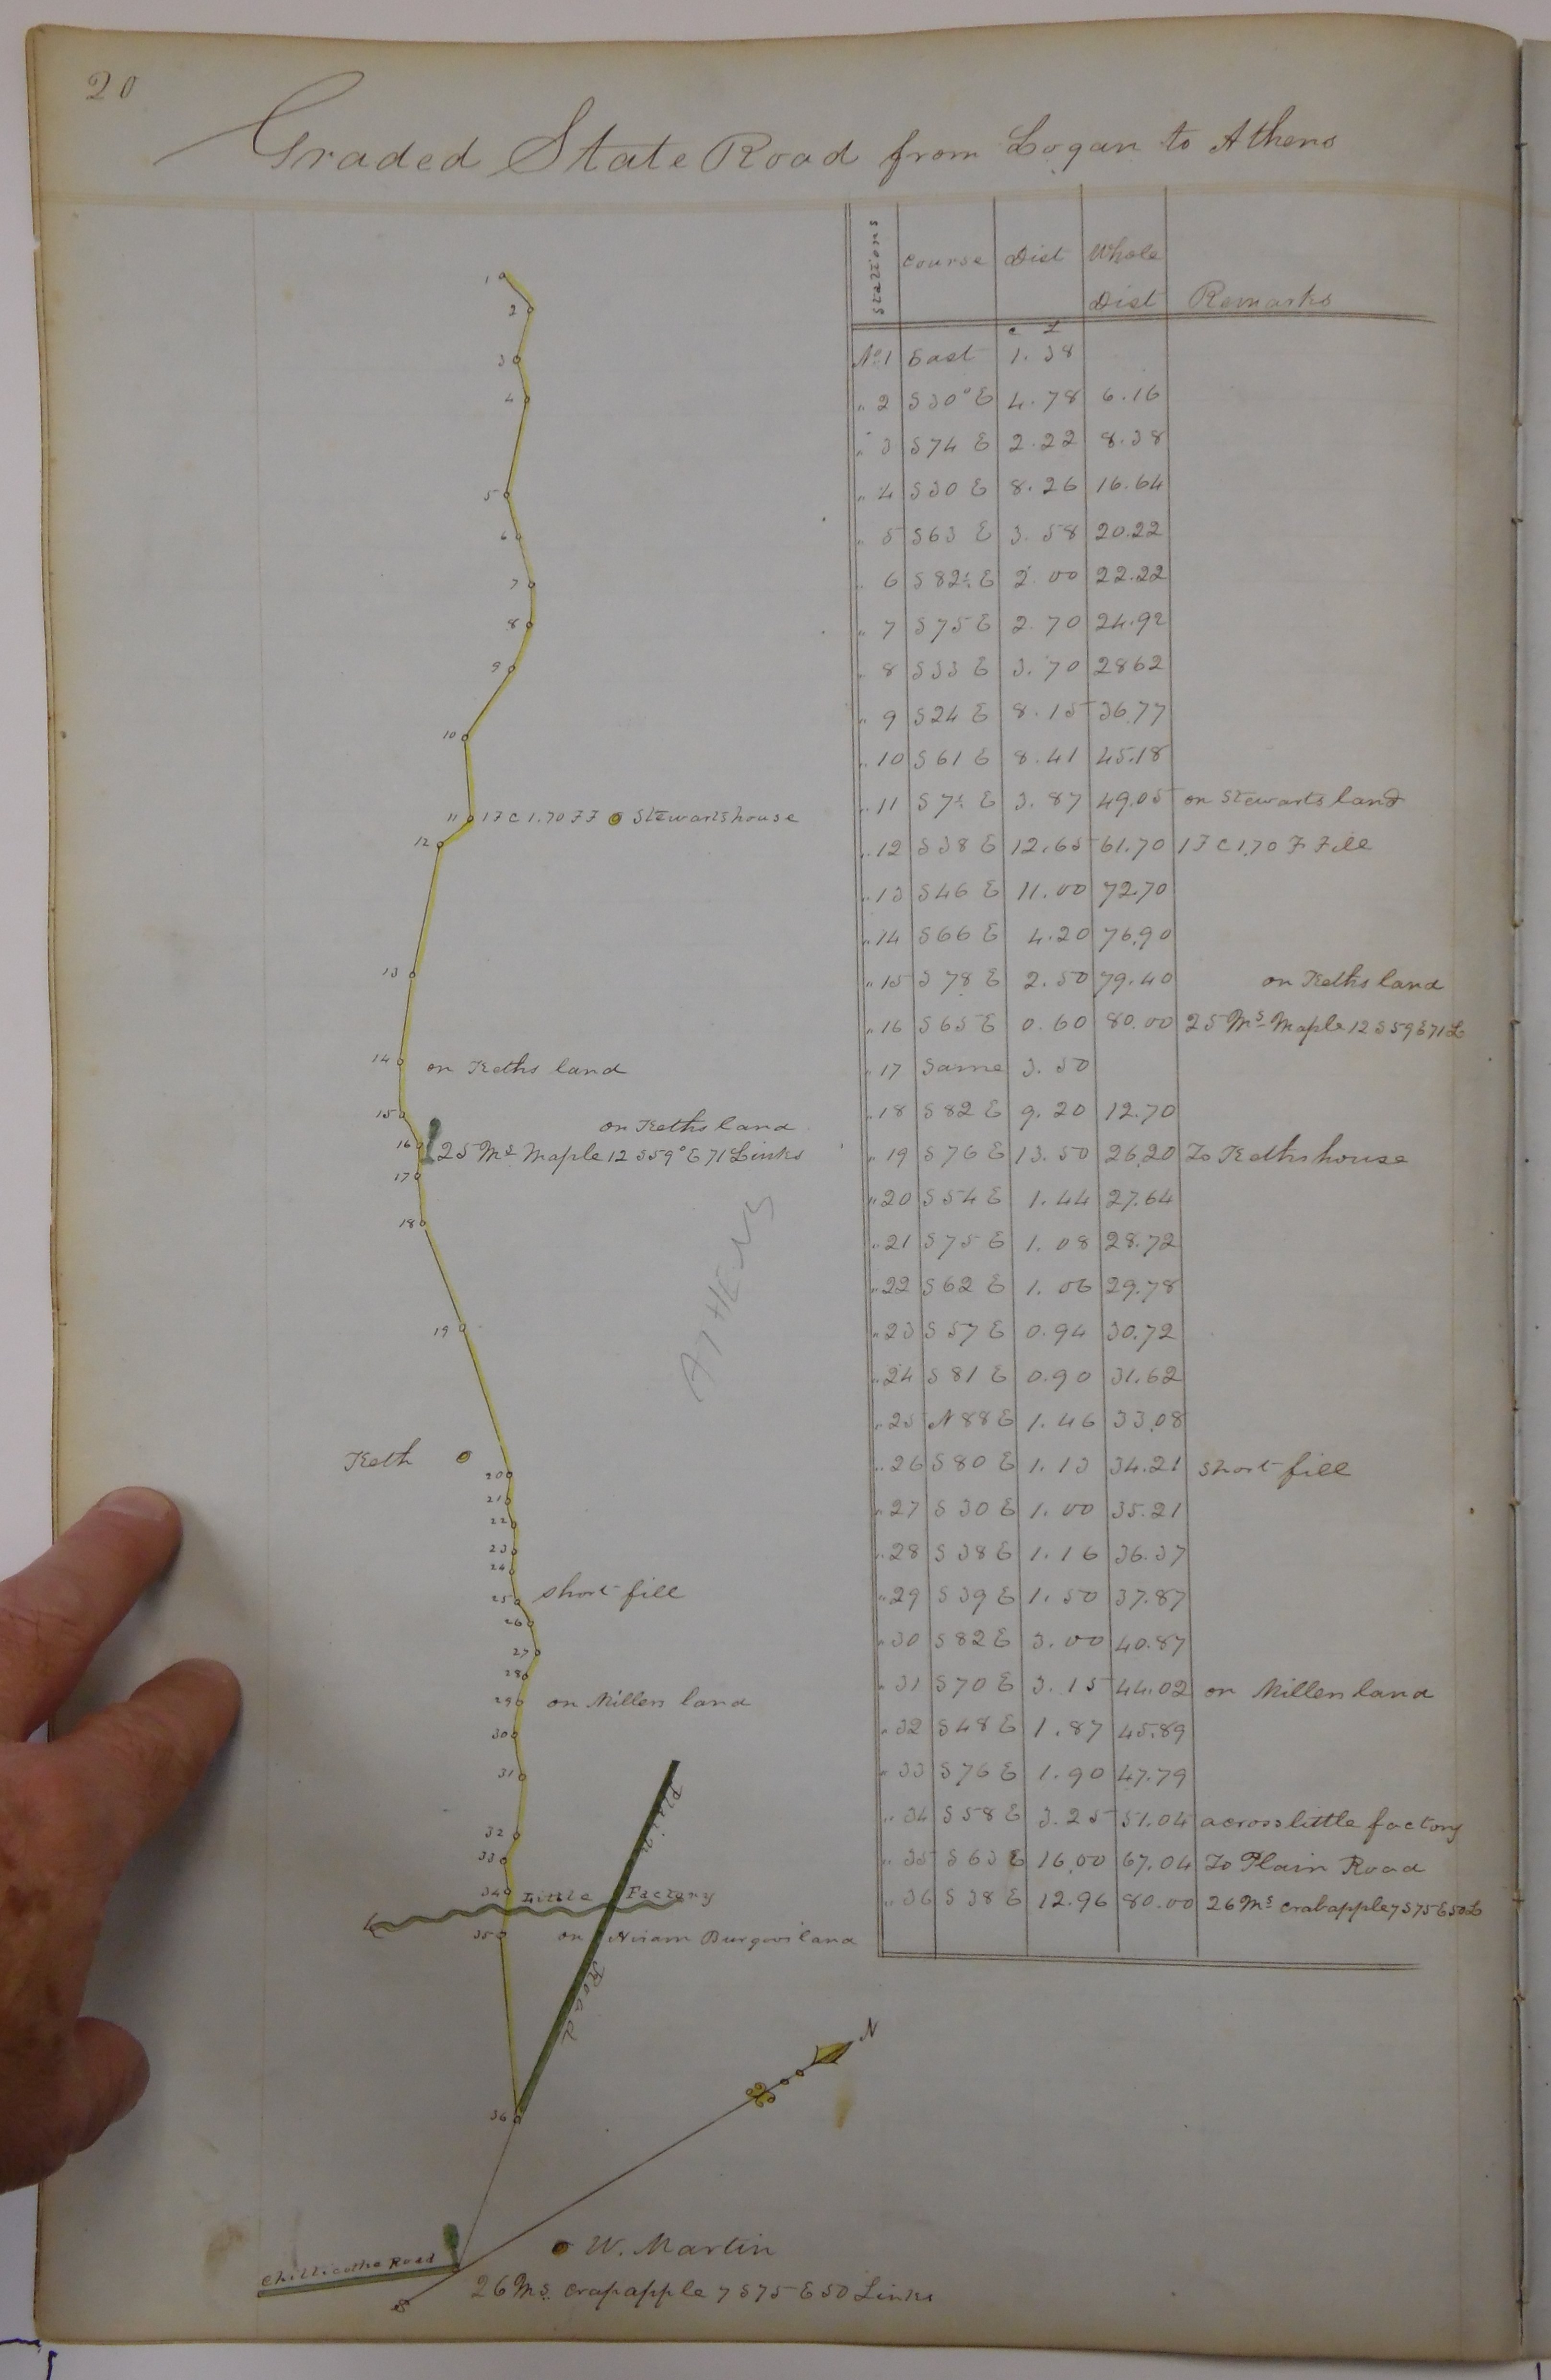 20
Graded State Road from Logan to Athens
Stations Course Dist Whole Dist Remarks
C L
No 1 East 1.38
" 2 S30°E 4.78 6.16
" 3 S74 E 2.22 8.38
" 4 S30 E 8.26 16.64
" 5 S63 E 3.58 20.22
" 6 S82½ E 2.00 22.22
" 7 S75 E 2.70 24.92
" 8 S33 E 3.70 2862
" 9 S24 E 8.15 36.77
" 10 S61 E 8.41 45.18
" 11 S7½ E 3.87 49.05 on Stewarts land
" 12 S38 E 12.65 61.70 1F C 1.70 F Fill
" 13 S46 E 11.00 72.70
" 14 S66 E 4.20 76.90
" 15 S78 E 2.50 79.40 on Keths land
" 16 S65 E 0.60 80.00 25 Ms Maple 12 S59E71L
" 17 Same 3.50
" 18 S82 E 9.20 12.70
" 19 S76 E 13.50 26.20 To Keths house
" 20 S54 E 1.44 27.64
" 21 S75 E 1.08 28.72
" 22 S62 E 1.06 29.78
" 23 S57 E 0.94 30.72
" 24 S81 E 0.90 31.62
" 25 N88 E 1.46 33.08
" 26 S80 E 1.13 34.21 short fill
" 27 S30 E 1.00 35.21
" 28 S38 E 1.16 36.37
" 29 S39 E 1.50 37.87
" 30 S82 E 3.00 40.87
" 31 S70 E 3.15 44.02 on Millers land
" 32 S48 E 1.87 45.89
" 33 S76 E 1.90 47.79
" 34 S58 E 3.25 51.04 across little factory
" 35 S63 E 16.00 67.04 To Plain Road
" 36 S38 E 12.96 80.00 26 Ms crabapple 7 S75E50L
1
2
3
4
5
6
7
8
9
10
11 1F C 1.70 F F Stewarts house
12
13
14 on Keths land
15
on Keths land
16 25 Ms Maple 12 S59°E 71 Links
17
18
ATHENS
19
Keth
20
21
22
23
24
25 short fill
26
27
28
29 on Millers land
30
31
Plain
32
33
34 Little Factory
35 on Hiram land
Road
36
N
W. Martin
Chillicothe Road
26 Ms crapapple 7 S75 E 50 Links
S